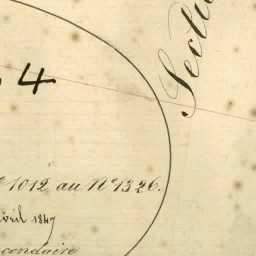 Secti
4
1012 au N° 1326.
vril 1847
condaire